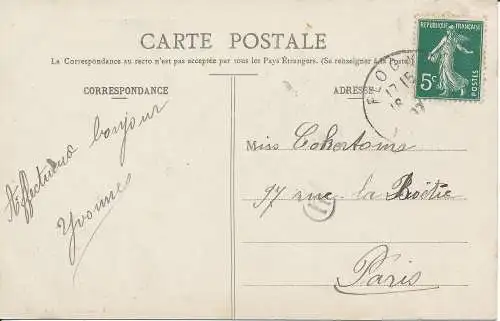 CARTE POSTALE
La Correspondance au recto n'est pas acceptée par tous les Pays Étrangers. (Se renseigner à la Poste)
CORRESPONDANCE
ADRESSE
RÉPUBLIQUE FRANÇAISE
5c
POSTES
FLOG
17 15
18
Affectueux bonjour
Yvonne
Miss
97 rue la Boëtie
Paris